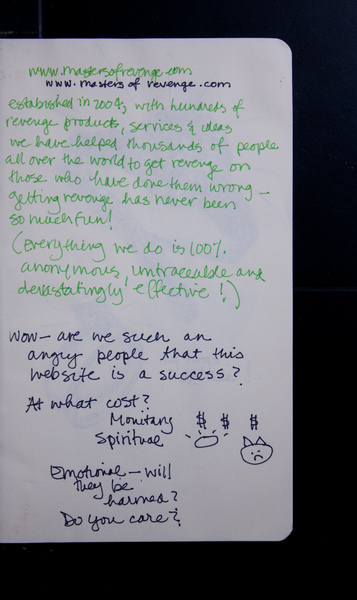 www.mastersofrevenge.com
www.masters of revenge.com
established in 2004, with hundreds of
revenge products, services & ideas
we have helped thousands of people
all over the world to get revenge on
those who have done them wrong —
getting revenge has never been
so much fun!
(Everything we do is 100%
anonymous, untraceable and
devastatingly effective!)
Wow — are we such an
angry people that this
website is a success?
At what cost?
Monitary $ $ $
Spiritual
Emotional — will
they be
harmed?
Do you care?